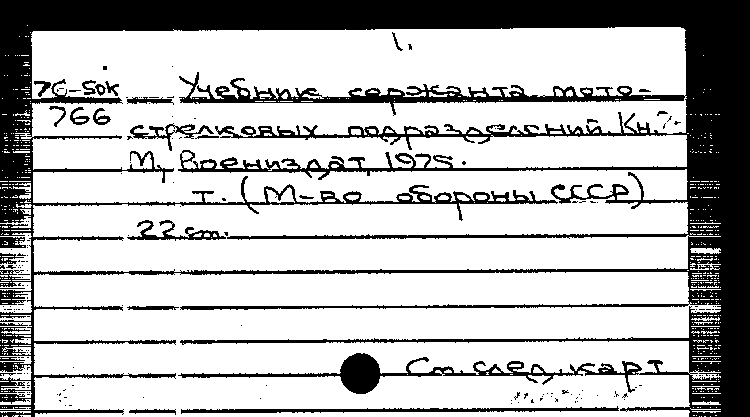 1.
76-50к Учебник сержанта мото-
766 стрелковых подразделений. Кн.
М., Воениздат, 1975.
т. (М-во обороны СССР)
22 cm.
См. след. карт